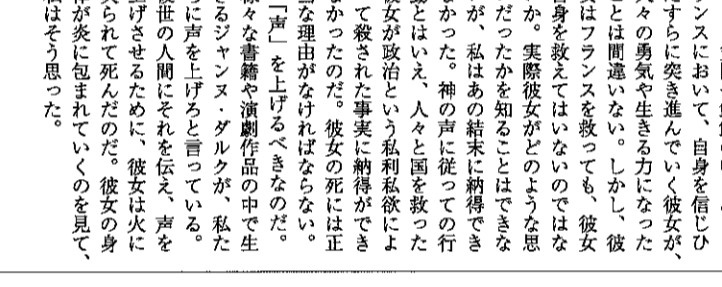 ンスにおいて、自身を信じひ
たすらに突き進んでいく彼女が、
人々の勇気や生きる力になった
ことは間違いない。しかし、彼
女はフランスを救っても、彼女
自身を救えてはいないのではな
か。実際彼女がどのような思
だったかを知ることはできな
が、私はあの結末に納得でき
なかった。神の声に従っての行
動とはいえ、人々と国を救った
彼女が政治という私利私欲によ
て殺された事実に納得ができ
なかったのだ。彼女の死には正
当な理由がなければならない。
「声」を上げるべきなのだ。
様々な書籍や演劇作品の中で生
きるジャンヌ・ダルクが、私た
ちに声を上げろと言っている。
後世の人間にそれを伝え、声を
上げさせるために、彼女は火に
られて死んだのだ。彼女の身
体が炎に包まれていくのを見て、
私はそう思った。